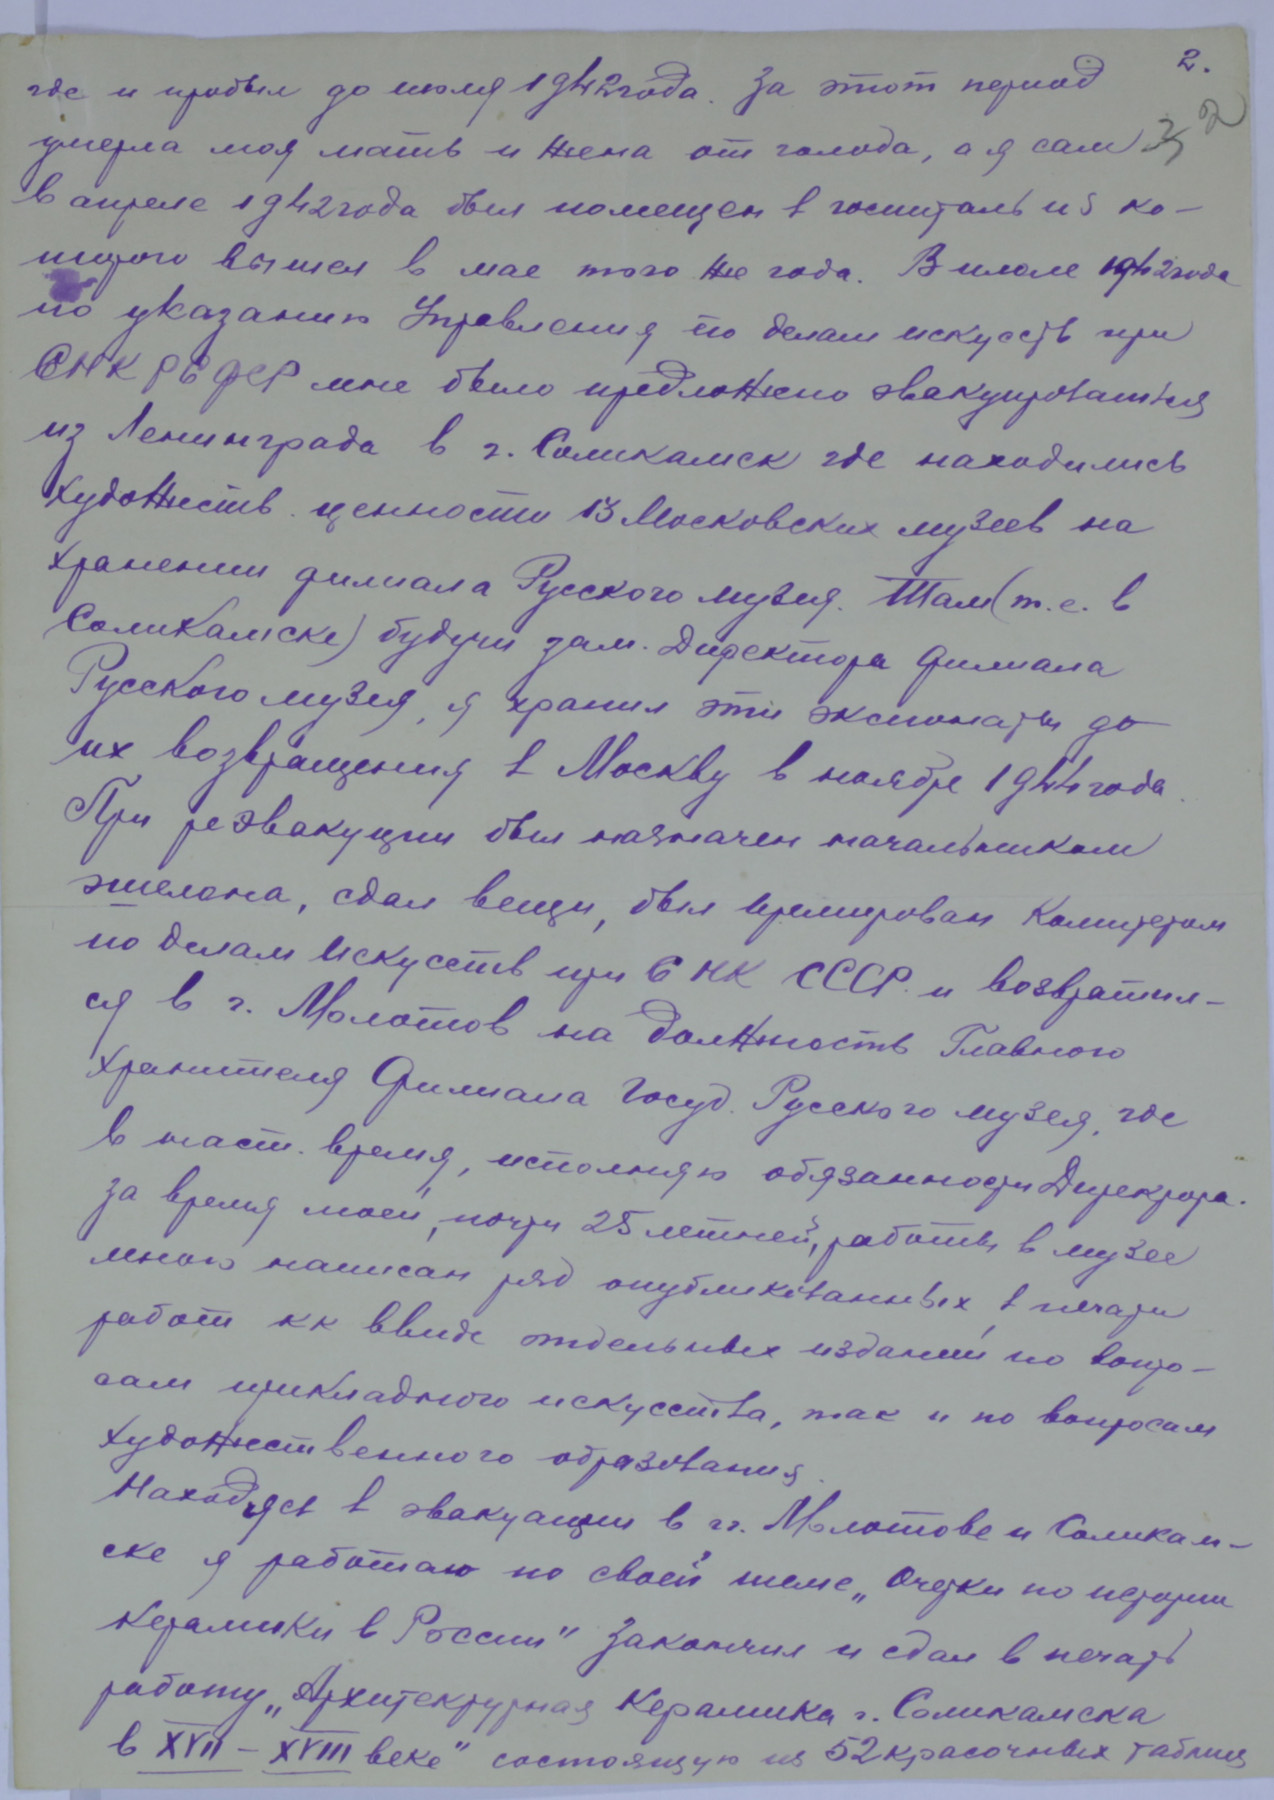 2.
где и пробыл до июля 1942 года. За этот период
умерла моя мать и жена от голода, а я сам
в апреле 1942 года был помещен в госпиталь из ко-
торого вышел в мае того же года. В июле 1942 года
по указанию Управления по делам искусств при
СНК РСФСР мне было предложено эвакуироваться
из Ленинграда в г. Соликамск где находились
художеств. ценности 13 Московских музеев на
хранении филиала Русского музея. Там (т.е. в
Соликамске) будучи зам. Директора Филиала
Русского музея, я хранил эти экспонаты до
их возвращения в Москву в ноябре 1944 года.
При реэвакуции был назначен начальником
эшелона, сдал вещи, был премирован Комитетом
по делам Искусств при СНК СССР. и возвратил-
ся в г. Молотов на должность Главного
хранителя Филиала Госуд. Русского музея, где
в наст. время, исполняю обязанности Директора.
За время моей, почти 25 летней, работы в музее
мною написан ряд опубликованных в печати
работ кк ввиде отдельных изданий по вопро-
сам прикладного искусства, так и по вопросам
художественного образования.
Находясь в эвакуации в гг. Молотове и Соликам-
ске я работаю по своей теме „Очерки по истории
Керамики в России" Закончил и сдал в печать
работу „Архитектурная Керамика г. Соликамска
в XVII – XVIII веке" состоящую из 52 красочных таблиц